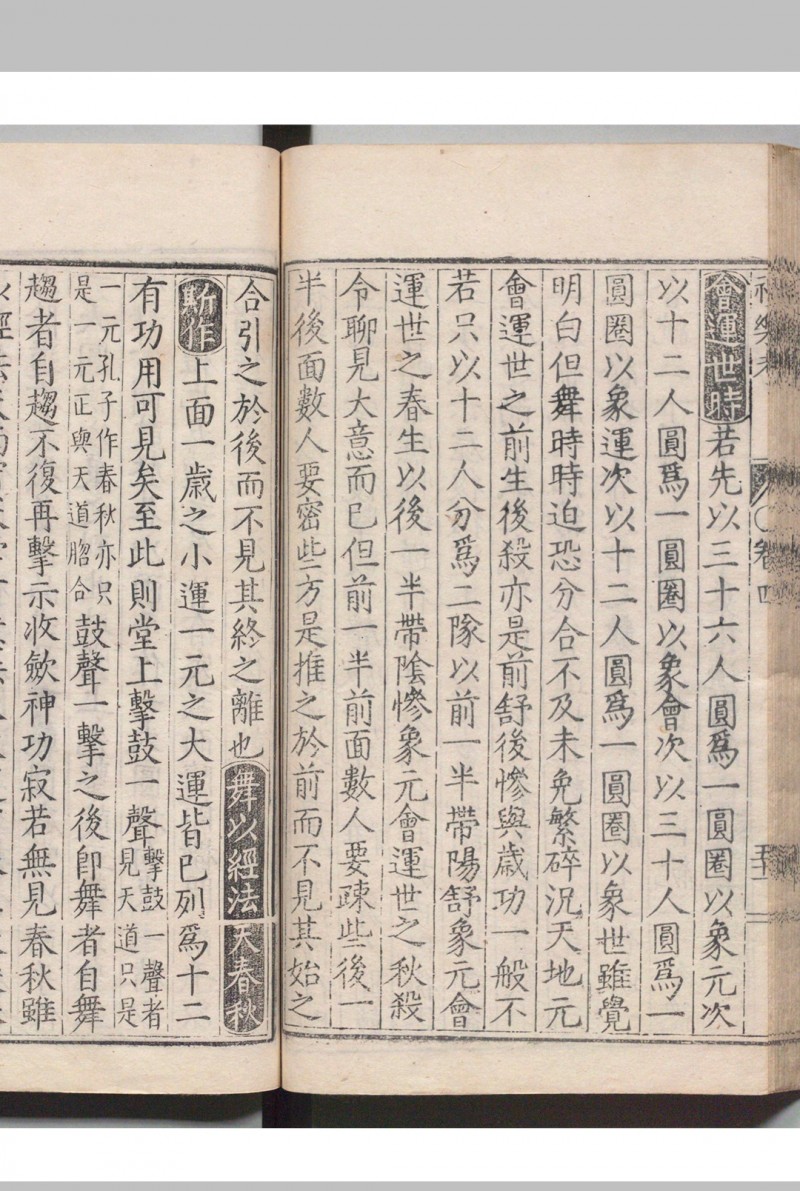 卷四
會運世時若先以三十六人圓爲一圓圈以象元次
以十二人圓爲一圓圈以象會次以三十人圓爲一
圓圈以象運次以十二人圓爲一圓圈以象世雖覺
明白但舞時時迫恐分合不及未免繁碎況天地元
會運世之前生後殺亦是前舒後慘與歲功一般不
若只以十二人分爲二隊以前一半帶陽舒象元會
運世之春生以後一半帶陰慘象元會運世之秋殺
令聊見大意而已但前一半前面數人要疎些後一
半後面數人要密些方是推之於前而不見其始之
合引之於後而不見其終之離也舞以經法天春秋
斯作上面一歲之小運一元之大運皆已列爲十二
有功用可見矣至此則堂上擊鼓一聲擊鼓一聲者
見天道只是
一元孔子作春秋亦只
是一元正與天道脗合鼓聲一擊之後卽舞者自舞
趨者自趨不復再擊示收斂神功寂若無見春秋雖